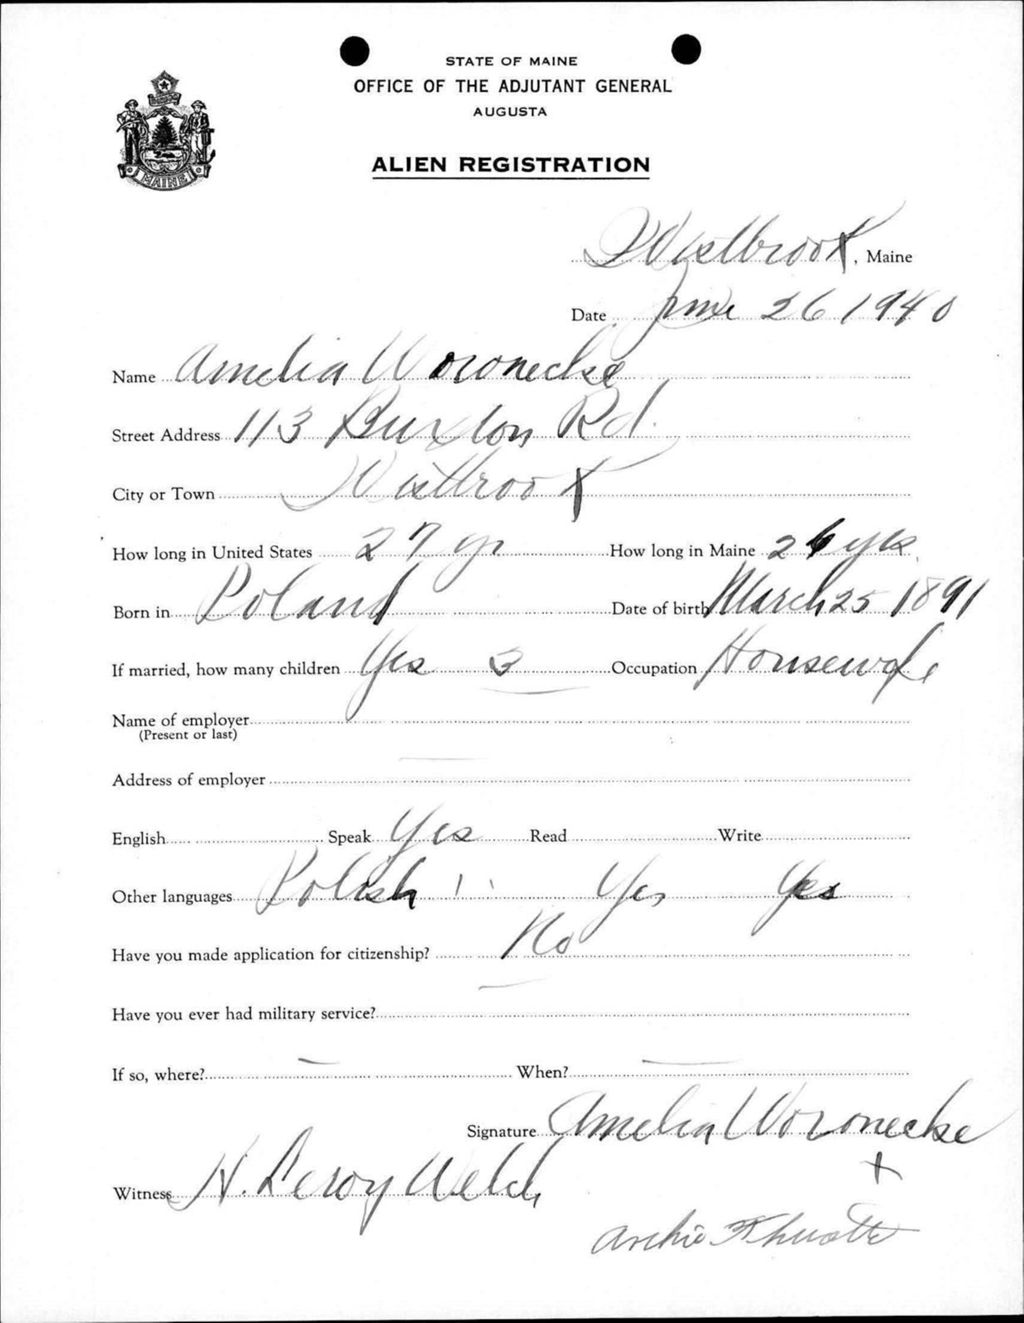 STATE OF MAINE
OFFICE OF THE ADJUTANT GENERAL
AUGUSTA
MAINE
ALIEN REGISTRATION
Westbrook, Maine
Date June 26 1940
Name Amelia Woronecke
Street Address 113 Buxton Rd.
City or Town Westbrook
How long in United States 27 yr How long in Maine 26 yrs
Born in Poland Date of birth March 25 1891
If married, how many children Yes 3 Occupation Housewife
Name of employer
(Present or last)
Address of employer
English Speak Yes Read Write
Other languages Polish " Yes Yes
Have you made application for citizenship? No
Have you ever had military service? —
If so, where? — When? —
Signature Amelia Woronecke
Witness H. Leroy Welch +
Archie